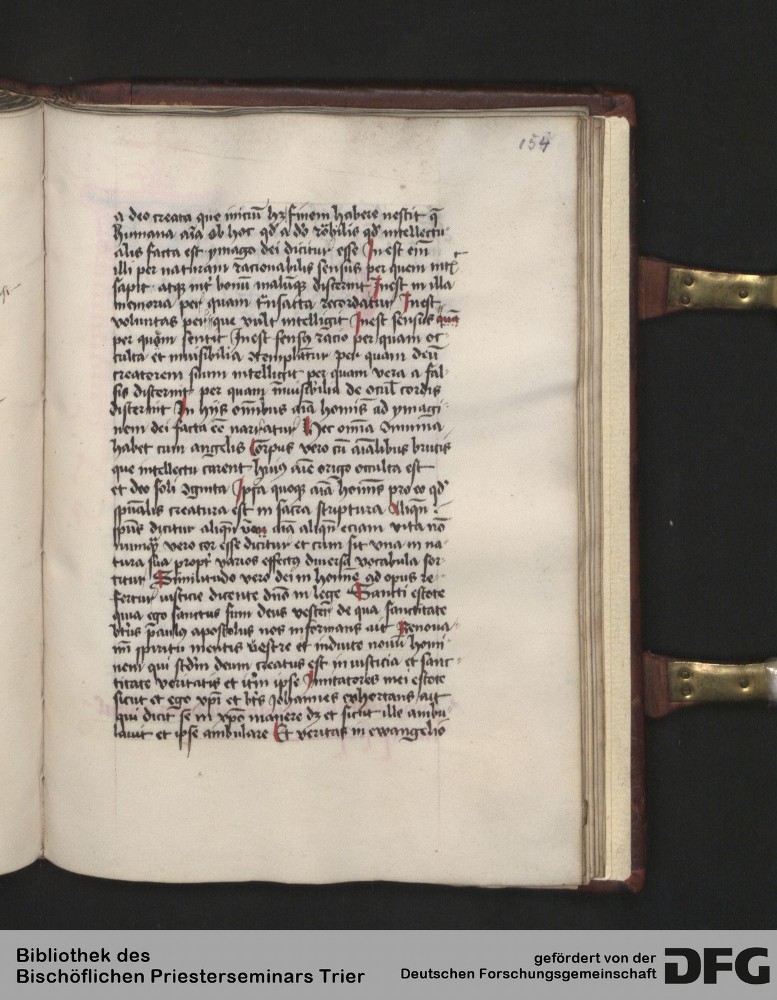 154
a deo creata que iniciū hȝ finem habere nescit q̄
humana aīa ob hoc qd̛ a do r̄o̅bilis qd̛ intellectu
alis facta est ymago dei dicitur esse Inest em̄
illi per naturam racionabilis sensus per quem
sapit atqȝ int̛ bonū malūqȝ discernit Inest in illa
memoria per quam recordatur Inest
voluntas per que vult intelligit Inest sensus
per quem sentit Inest sensȝ racio per quam oc
culta et inuisibilia ɔtemplatur per quam deū
creatorem suum intelligit per quam vera a fal
sis discernit per quam inuisibilia de ocul̄ cordis
discernit In hijs omībus aīa homīs ad ymagi
nem dei facta eē narratur Hec omīa
habet cum angelis Corpus vero cū aīalibus brutis
que intellectu carent huiꝰ aīe origo occulta est
et deo soli ɔgnita Ipsa quoqȝ aīa homīs pro eo qd̛
spūalis creatura est in sacra scriptura Aliqn̄
spūs dicitur aliqn̄ aīa aliqn̄ eciam vita nō
nūnqȝ vero cor esse dicitur et cum sit vna in na
tura sua propt̛ varios effectꝰ diuersa vocabula sor
titur Similitudo vero dei in homīe ad opus re
fertur iusticie dicente dnō in lege Sancti estote
quia ego sanctus sum deus vester de qua sanctitate
bt̄us paulꝰ apostolus nos informans ait Renoua
mī spiritu mentis vestre et induite nouū homi
nem qui scd̄m deum creatus est in iusticia et sanc
titate veritatis et itm̄ ipse Imitatores mei estote
sicut et ego xp̄i et bt̄s Johannes exhortans ait
qui dicit se in xp̄o manere dȝ et sicut ille ambu
lauit et ipse ambulare Et veritas in ewangelio
Bibliothek des
Bischöflichen Priesterseminars Trier
gefördert von der
Deutschen Forschungsgemeinschaft
DFG